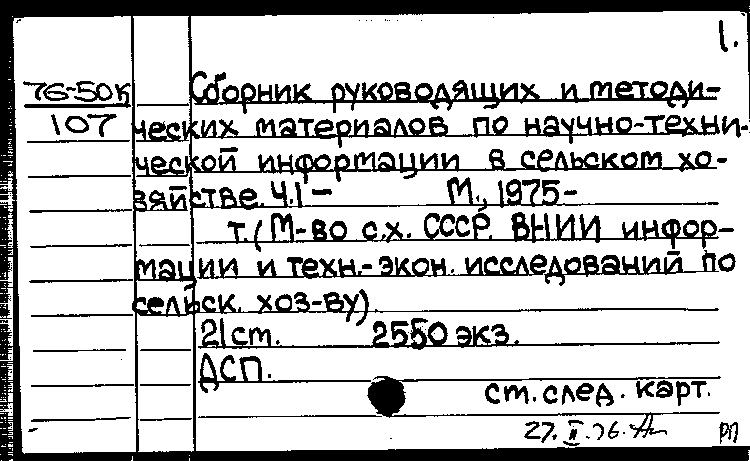 1.
76-50К Сборник руководящих и методи-
107 ческих материалов по научно-техни-
ческой информации в сельском хо-
зяйстве. Ч.1 – М., 1975-
т. (М-во с.х. СССР. ВНИИ инфор-
мации и техн.-экон. исследований по
сельск. хоз-ву).
21 ст. 2550 экз.
ДСП.
ст. след. карт.
27.II.76. РП